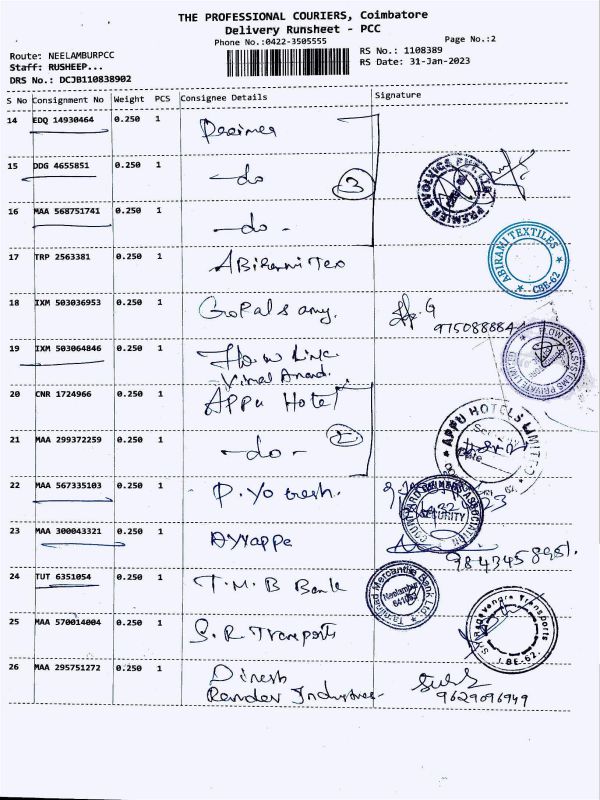 THE PROFESSIONAL COURIERS, Coimbatore
Delivery Runsheet - PCC
Phone No.:0422-3505555
Page No.:2
Route: NEELAMBURPCC
Staff: RUSHEEP...
DRS No.: DCJB110838902
RS No.: 1108389
RS Date: 31-Jan-2023
S No Consignment No Weight PCS Consignee Details Signature
14 EDQ 14930464 0.250 1
15 DDG 4655851 0.250 1 -do 3
PREMIER EVOLVICS PVT. LTD.
16 MAA 568751741 0.250 1 -do-
17 TRP 2563381 0.250 1
ABIRAMI TEXTILES CBE-62
18 IXM 503036953 0.250 1 GoPalsamy. G
975088884
19 IXM 503064846 0.250 1 Flow Link
Vimal Anand.
20 CNR 1724966 0.250 1 APPu Hotel
APPU HOTELS LIMITED
21 MAA 299372259 0.250 1 -do- 2
22 MAA 567335103 0.250 1
SECURITY
23 MAA 300043321 0.250 1 Ayyappa
24 TUT 6351054 0.250 1 T.M.B Bank
Tamilnad Mercantile Bank Ltd
Neelambur
25 MAA 570014004 0.250 1 S.R Transports
Transports
26 MAA 295751272 0.250 1 Dinesh
Industries-
9629096949